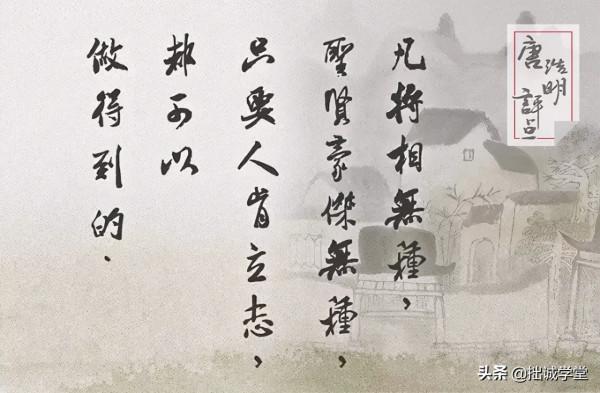 唐浩明
評点
凡將相無種，
聖賢豪傑無種，
只要人肯立志，
都可以
做得到的．
头条 @拙诚学堂